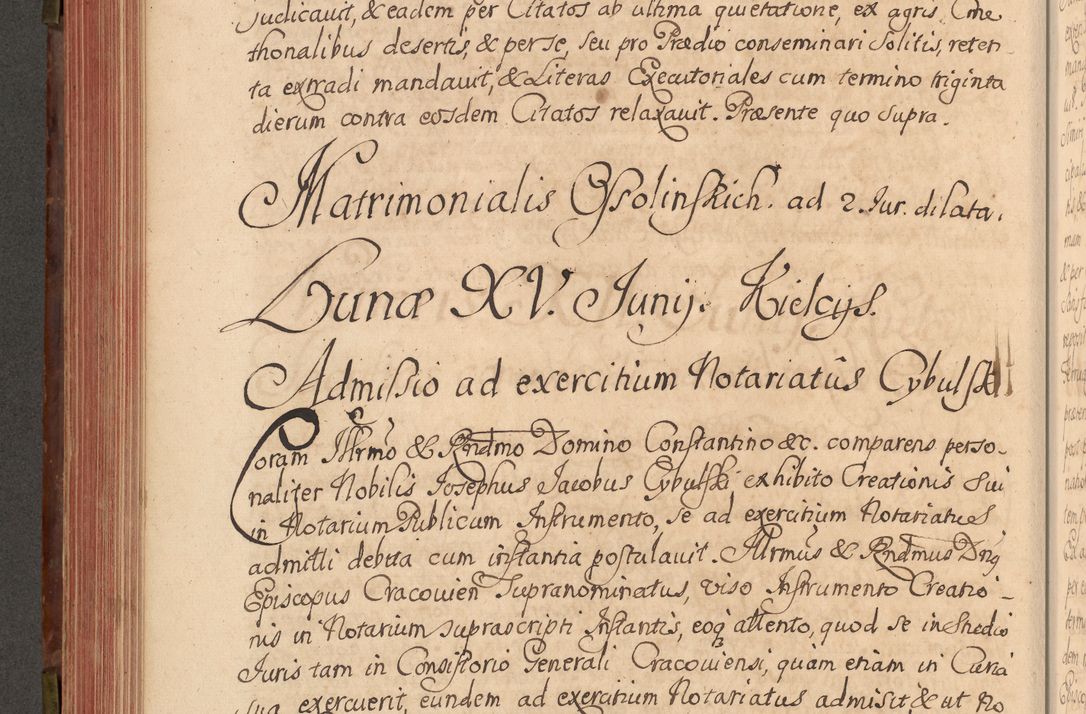 Judicavit, & eadem per Citatos ab ultima quietatione, ex agris Cme
thonalibus desertis, & per se, seu pro Prædio conseminari solitis, reten
ta extradi mandavit, & Literas Executoriales cum termino triginta
dierum contra eosdem Citatos relaxavit. Præsente quo supra.
Matrimonialis Ossolinskich. ad 2. Jur. dilata.
Lunæ XV. Junij. Kielcijs.
Admissio ad exercitium Notariatûs Cybulski
Coram Illrmo & Rndmo Domino Constantino &c. comparens perso-
naliter Nobilis Josephus Jacobus Cybulski exhibito Creationis Sui
in Notarium Publicum Instrumento, se ad exercitium Notariatus
admitti debita cum instantia postulavit. Illrmus & Rndmus Dnq
Episcopus Cracovien Supranominatus, viso Instrumento Creatio-
nis in Notarium suprascripti Instantis, eoq attento, quod se in Studio
Juris tam in Consistorio Generali Cracoviensi, quam etiam in Curia
sua exercuerit, eundem ad exercitium Notariatus admisit & ut No